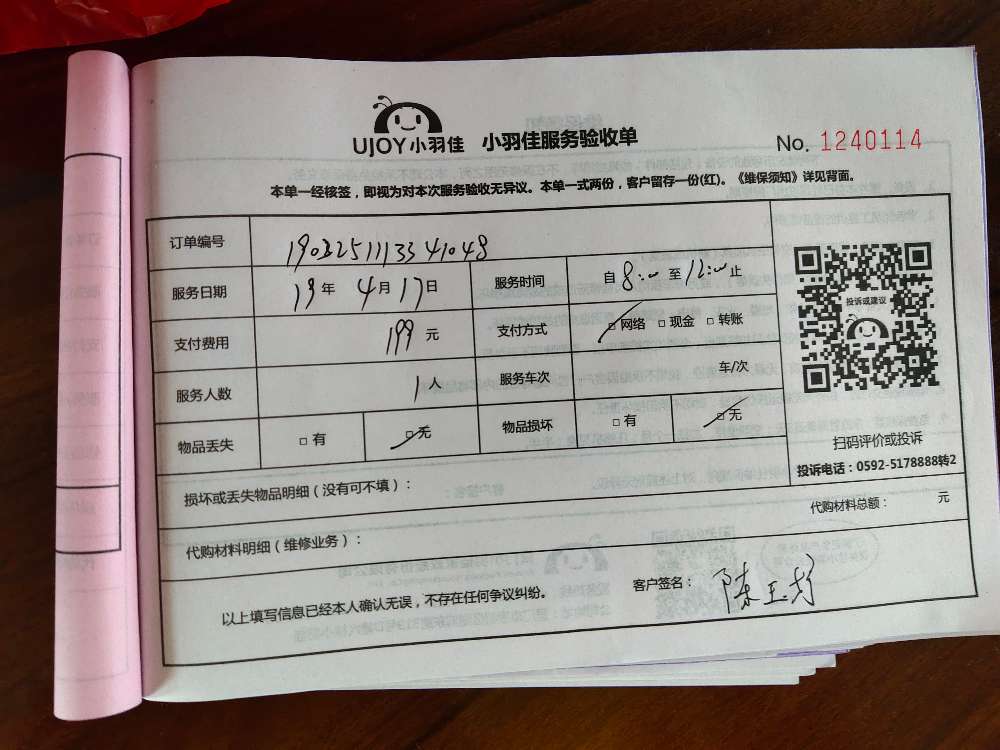 UJOY小羽佳 小羽佳服务验收单
No. 1240114
本单一经核签，即视为对本次服务验收无异议。本单一式两份，客户留存一份(红)。《维保须知》详见背面。
订单编号 190325111334 1048
服务日期 19年 4月17日 服务时间 自 8:00 至 12:00 止
支付费用 199 元 支付方式 □网络 □现金 □转账
服务人数 1人 服务车次 车/次
物品丢失 □有 □无 物品损坏 □有 □无
投诉或建议
扫码评价或投诉
投诉电话：0592-5178888转2
损坏或丢失物品明细（没有可不填）：
代购材料总额： 元
代购材料明细（维修业务）：
以上填写信息已经本人确认无误，不存在任何争议纠纷。
客户签名： 陈玉